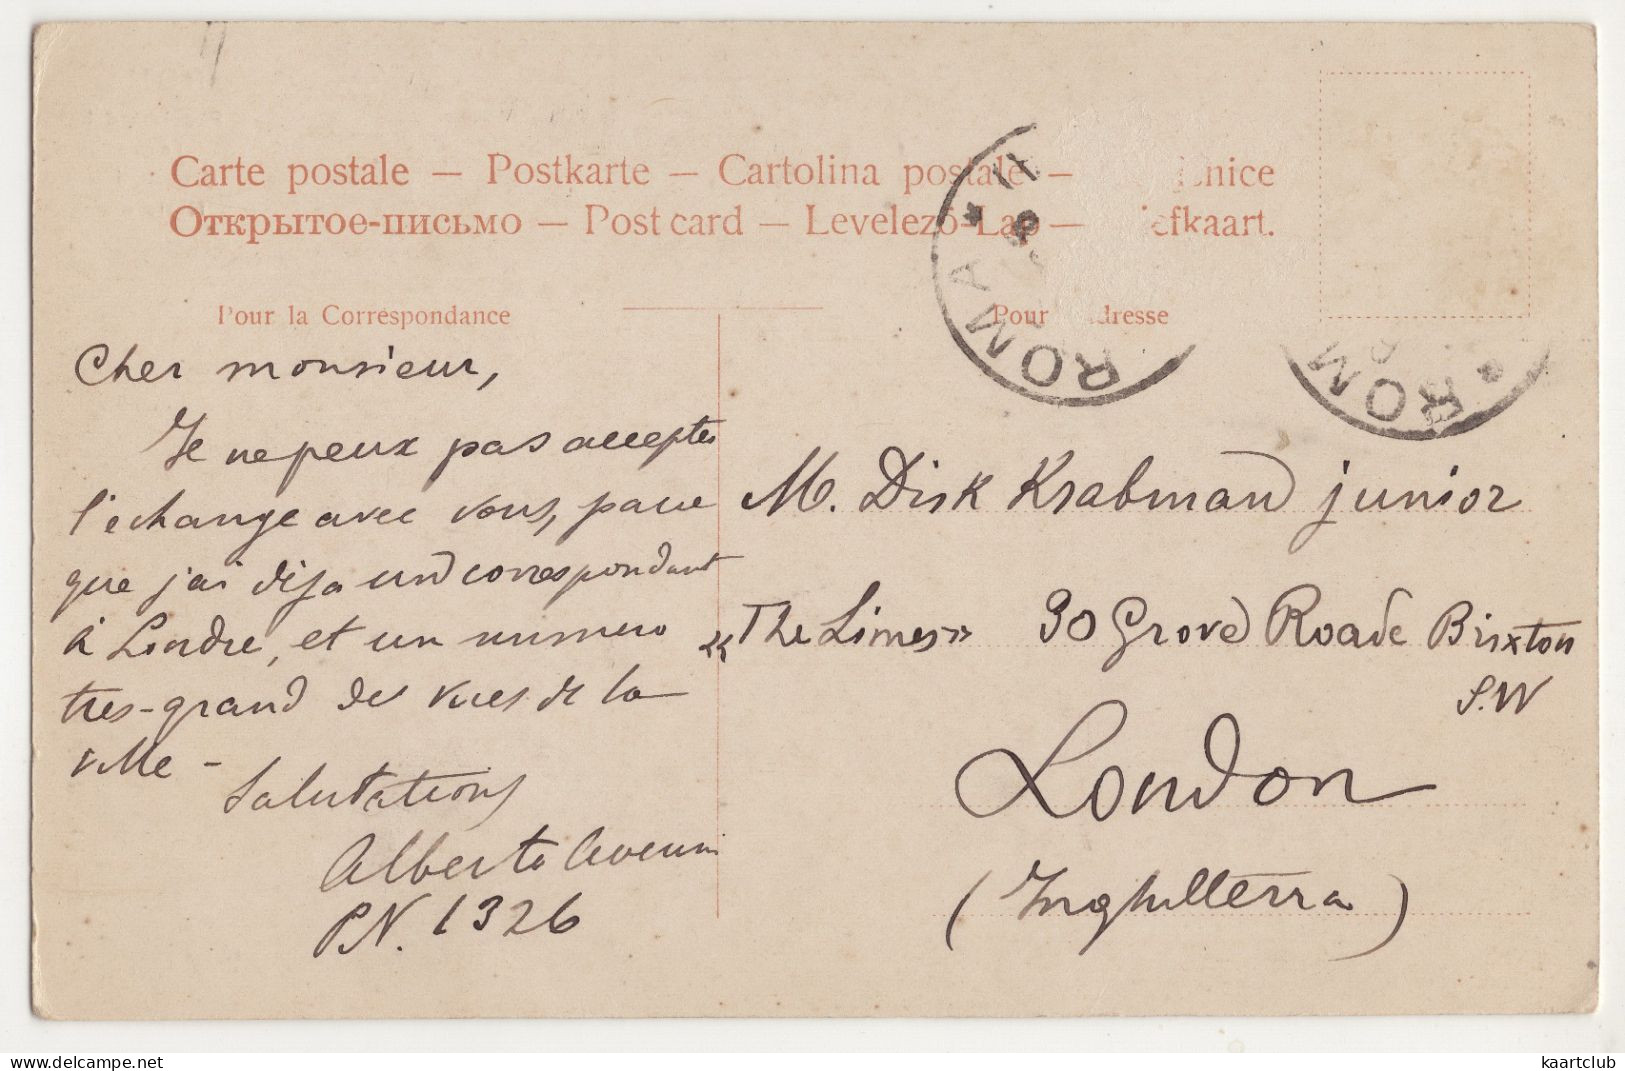 Carte postale — Postkarte — Cartolina postale — nice
Открытое-письмо — Post card — Levelező-Lap — efkaart.
Pour la Correspondance
Pour dresse
ROMA
11
ROM
Cher monsieur,
Je ne peux pas accepter
l'échange avec vous, parce
que j'ai deja un correspondant
à Londre, et un numero
tres-grand des vues de la
ville -
Salutations
Alberto
P.N. 1326
M. Dirk Krabman junior
"The Limes" 30 Grove Roade Brixton
S.W
London
(Inghilterra)
delcampe.net
kaartclub